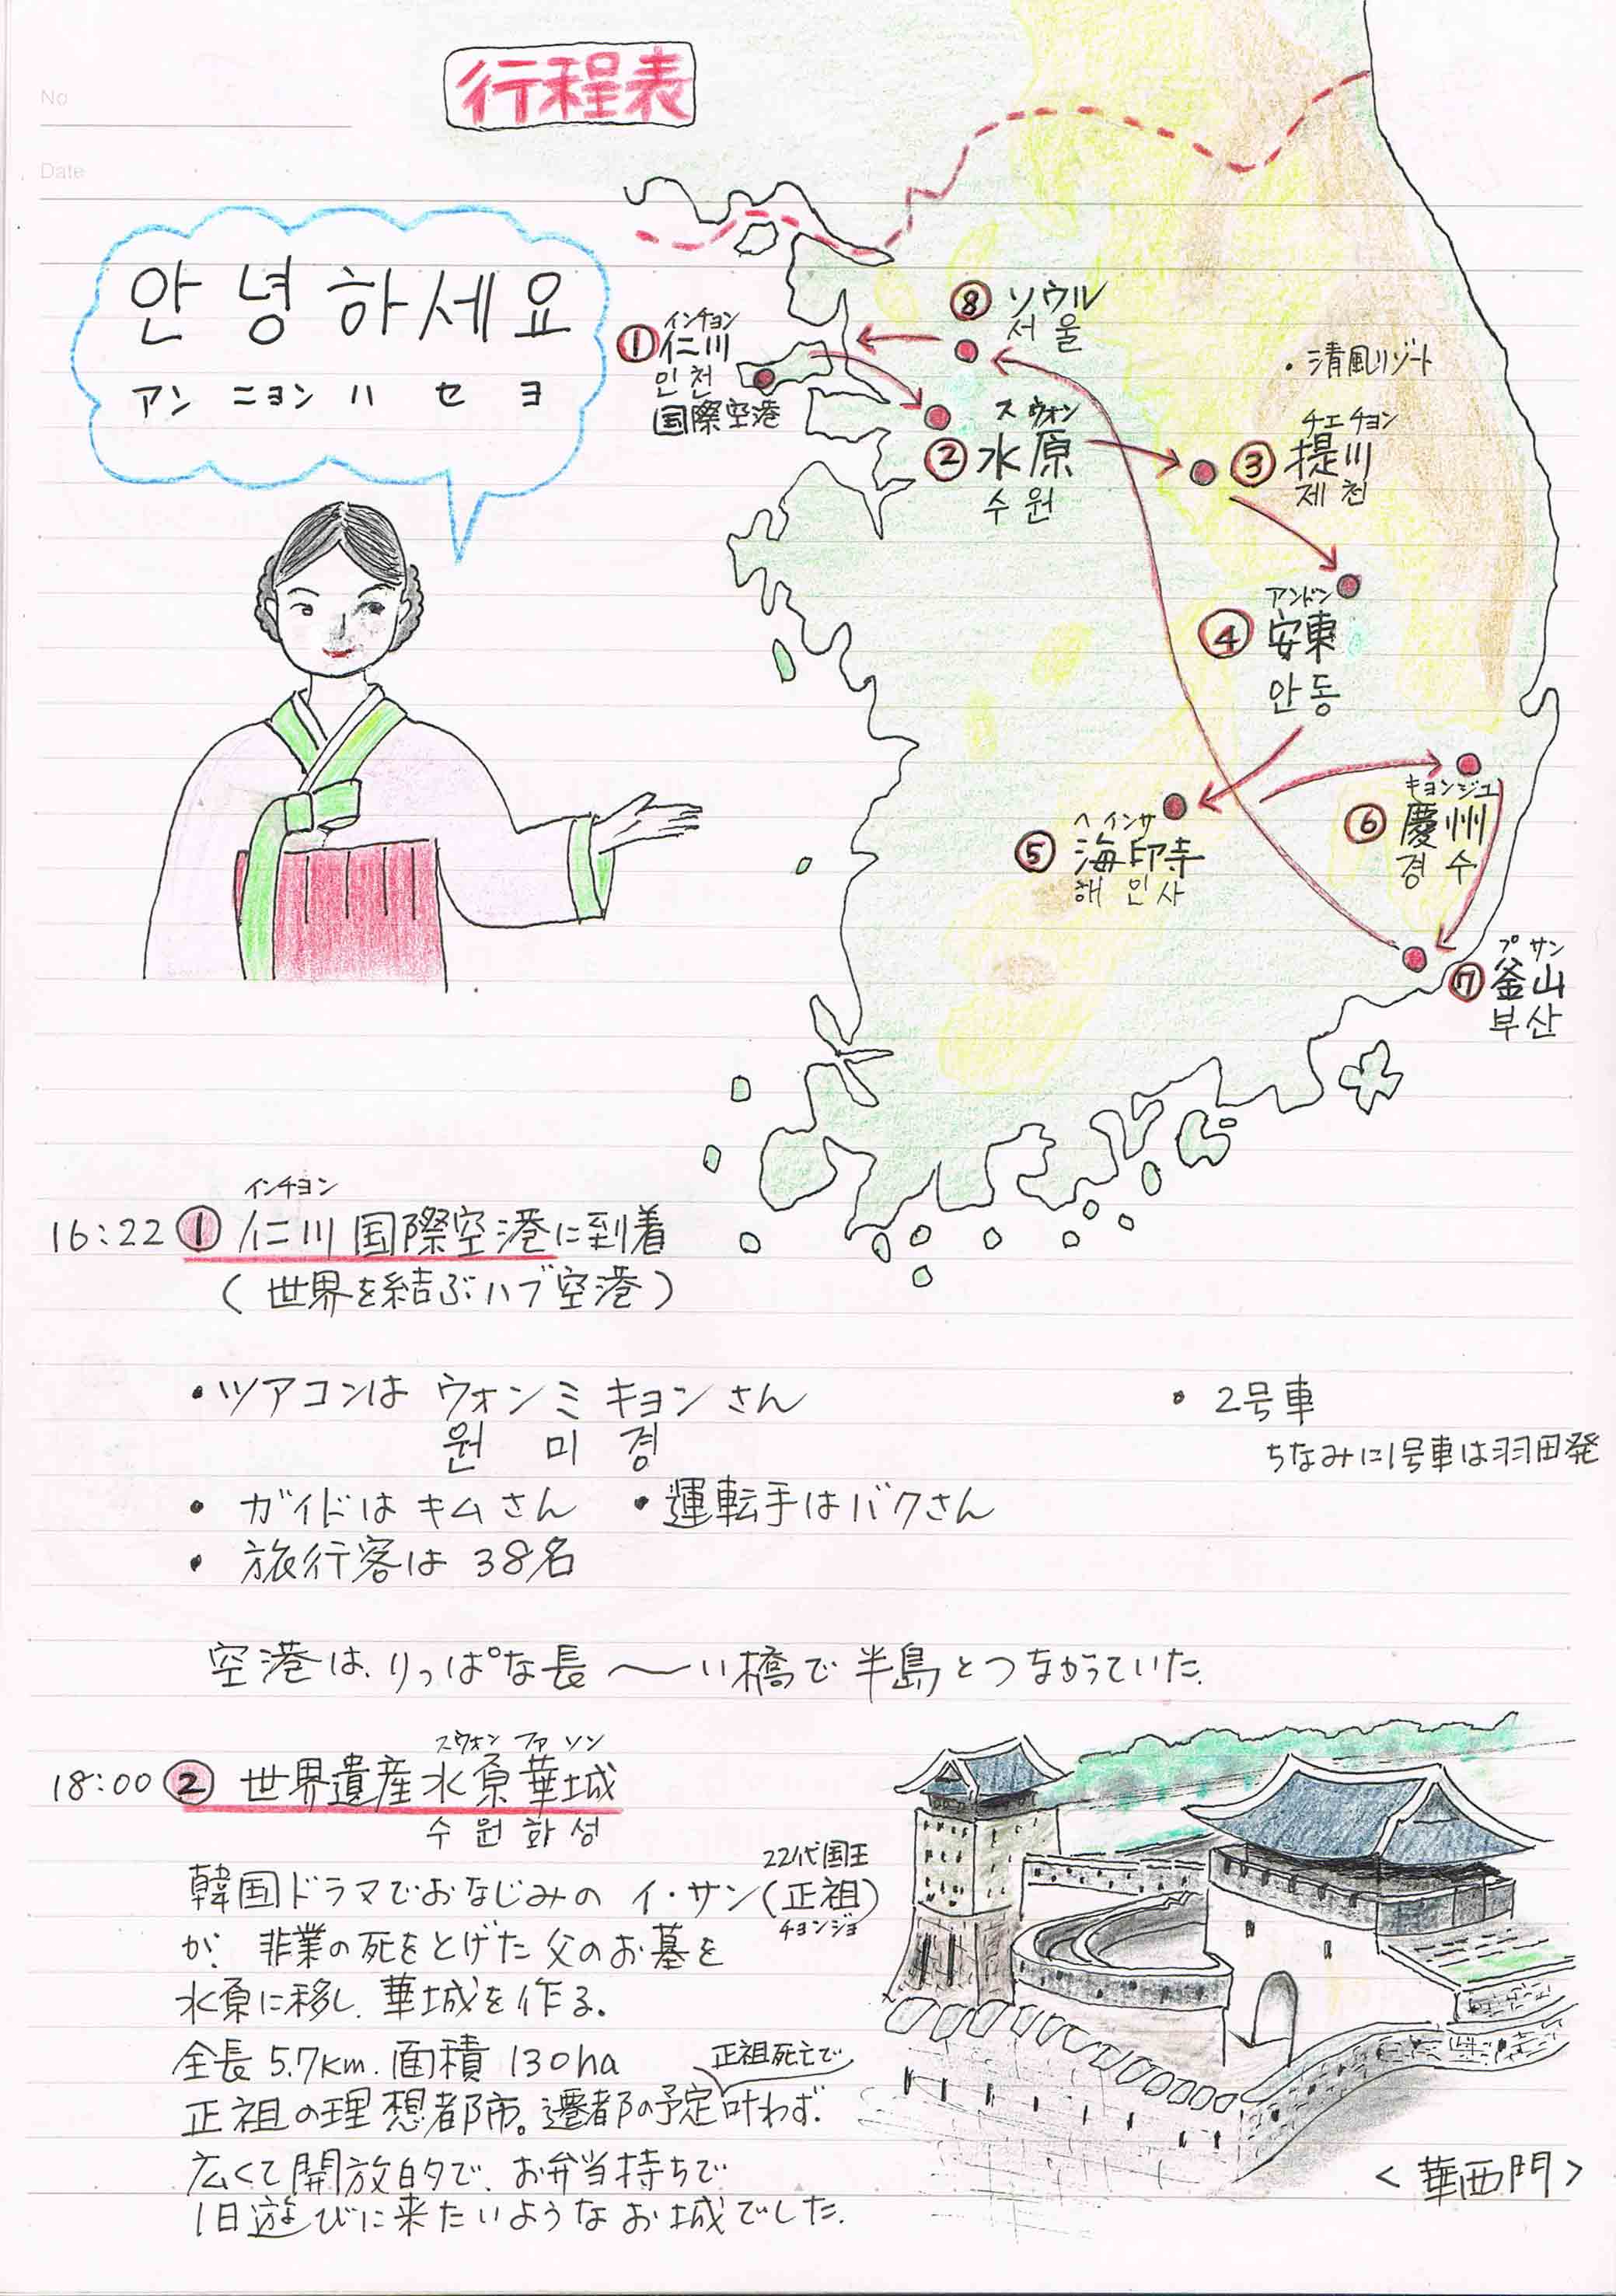 行程表
No
Date
안녕하세요
アンニョンハセヨ
① 仁川
インチョン
인천
国際空港
⑧ ソウル
서울
・清風リゾート
スウォン
② 水原
수원
チエチョン
③ 提川
제천
アンドン
④ 安東
안동
ヘインサ
⑤ 海印寺
해인사
キョンジュ
⑥ 慶州
경수
プサン
⑦ 釜山
부산
インチョン
16:22 ① 仁川国際空港に到着
(世界を結ぶハブ空港)
・ツアコンは ウォンミキョンさん
원미경
・2号車
ちなみに1号車は羽田発
・ガイドはキムさん ・運転手はバクさん
・旅行客は 38名
空港は、りっぱな長〜い橋で半島とつながっていた。
スウォンファソン
18:00 ② 世界遺産水原華城
수원화성
22代国王
韓国ドラマでおなじみの イ・サン(正祖)
チョンジョ
が、非業の死をとげた父のお墓を
水原に移し、華城を作る。
全長5.7km.面積130ha
正祖死亡で
正祖の理想都市。遷都の予定叶わず.
広くて開放的で、お弁当持ちで
1日遊びに来たいようなお城でした.
<華西門>